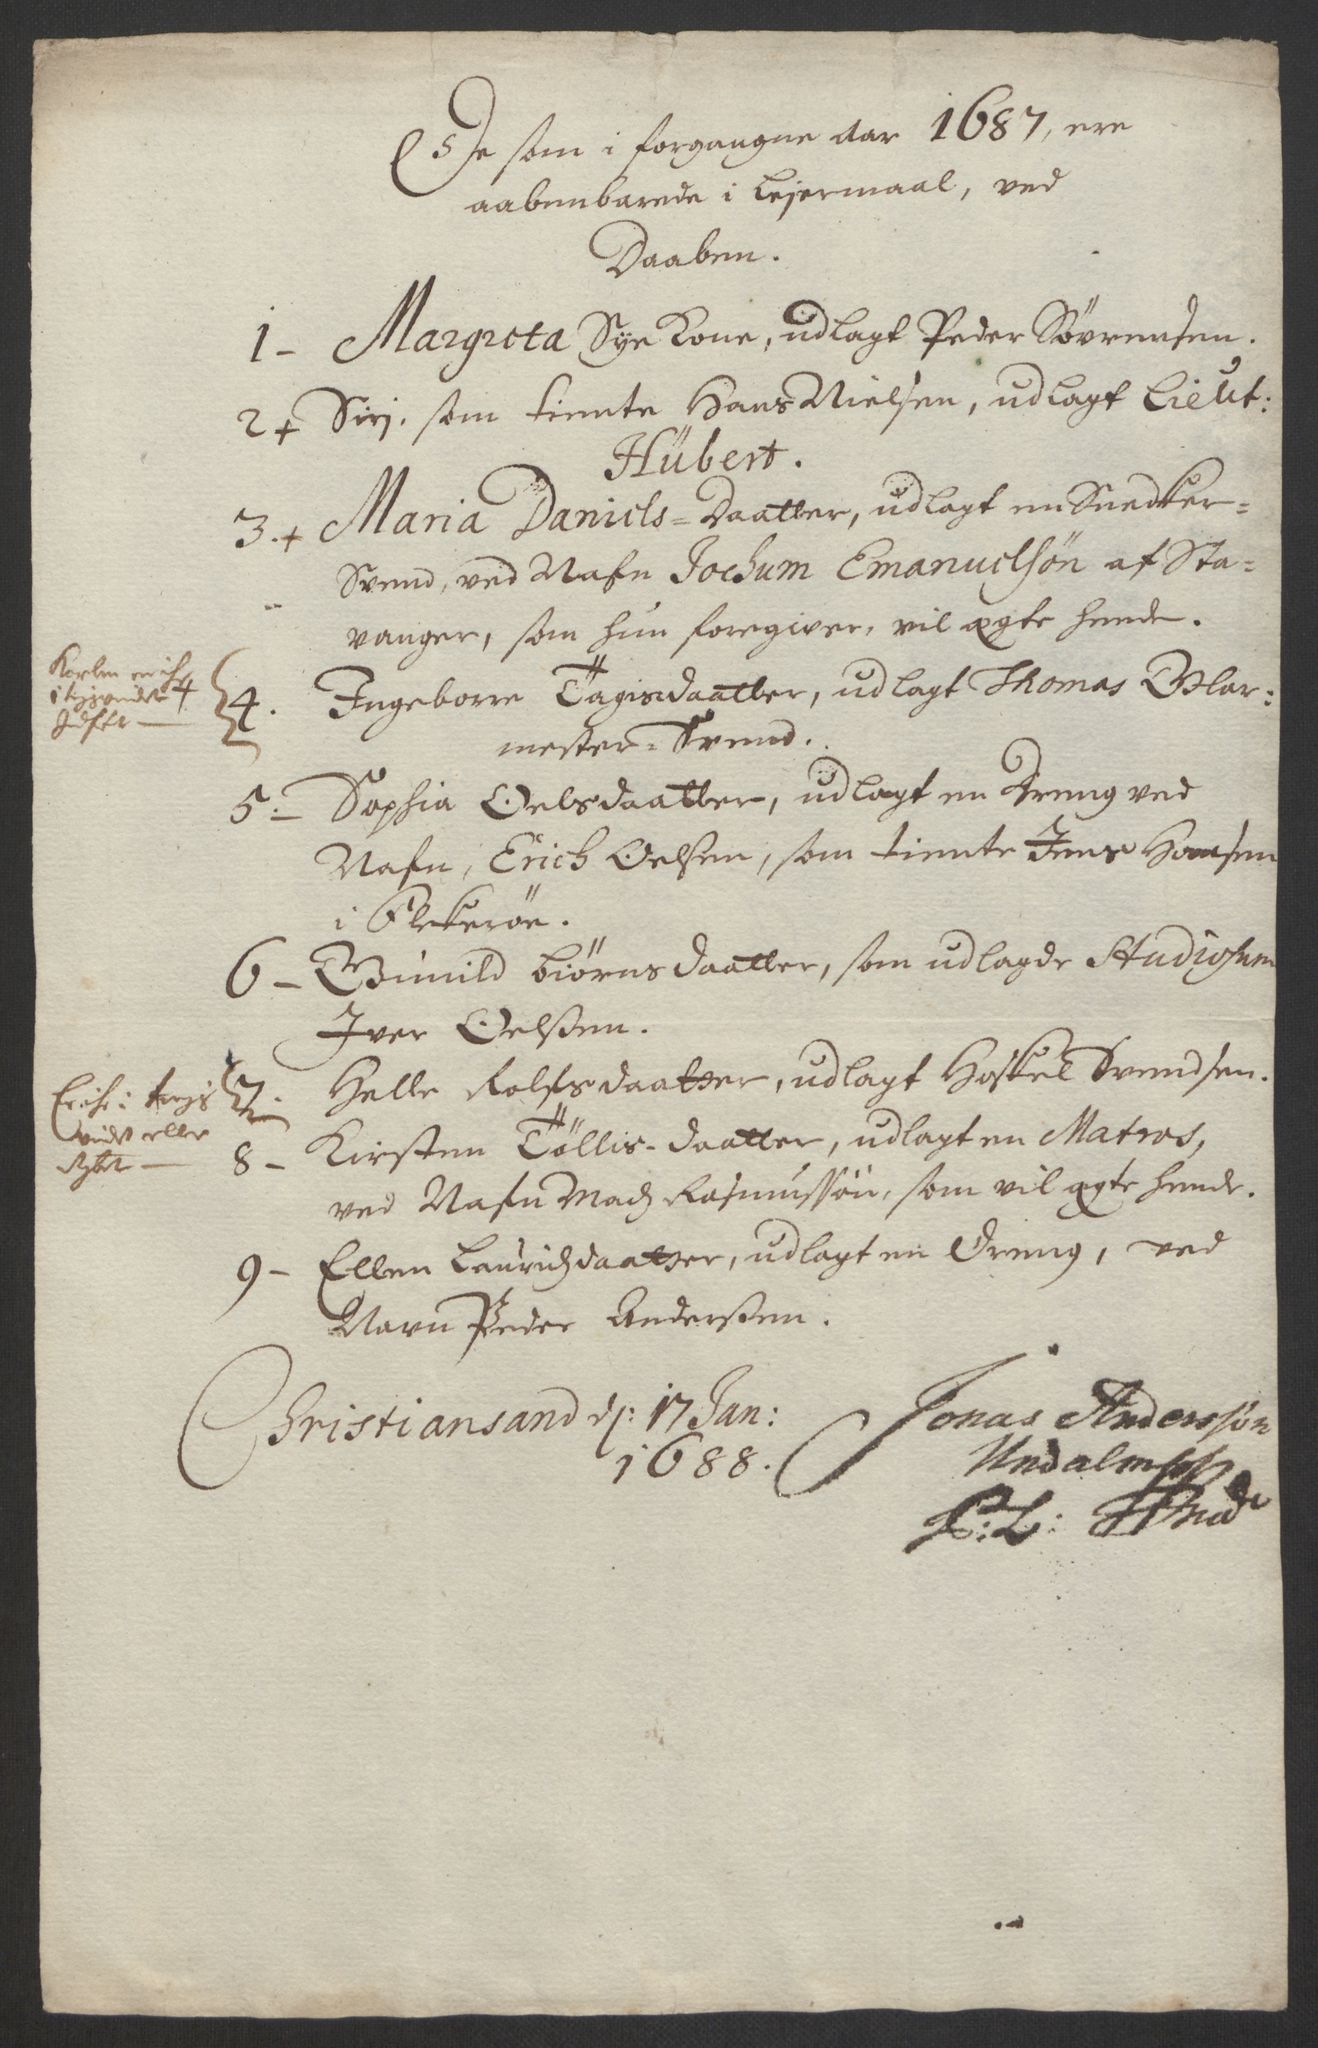 De som i forgangne Aar 1687, ere
aabenbarede i Lejermaal, ved
Daaben.
1 – Margreta Sye Kone, udlagt Peder Sövrensen.
2 + Siri, som tiente Hans Nielsen, udlagt Lieut:
Hübert.
3. + Maria Daniels=Daatter, udlagt en Snedker=
Svend, ved Nafn Jochum Emanuelsön af Sta=
vanger, som hun foregiver, vil ægte hende.
Karlen er icke
4. Ingeborre Tagisdaatter, udlagt Thomas Glar:
mester=Svend.
5 :– Sophia Oelsdaatter, udlagt en Dreng ved
Nafn, Erich Oelsen, som tiente Jens Hansen
i Flekeröe.
6 – Gunild Biörnsdaatter, som udlagde Studiosum
Iver Oelssen.
7. Helle Rolfsdaatter, udlagt Hoskel Svendsen.
Er icke i
eller
8 – Kirsten Töllis-daatter, udlagt en Matros,
ved Nafn Madz Rasmussön, som vil ægte hende.
9 – Ellen Lauridzdaatter, udlagt en Dreng, ved
Navn Peder Anderssen.
Christiansand d: 17 Jan:
1688.
Jonas Anderssön
Undalin
P: L: